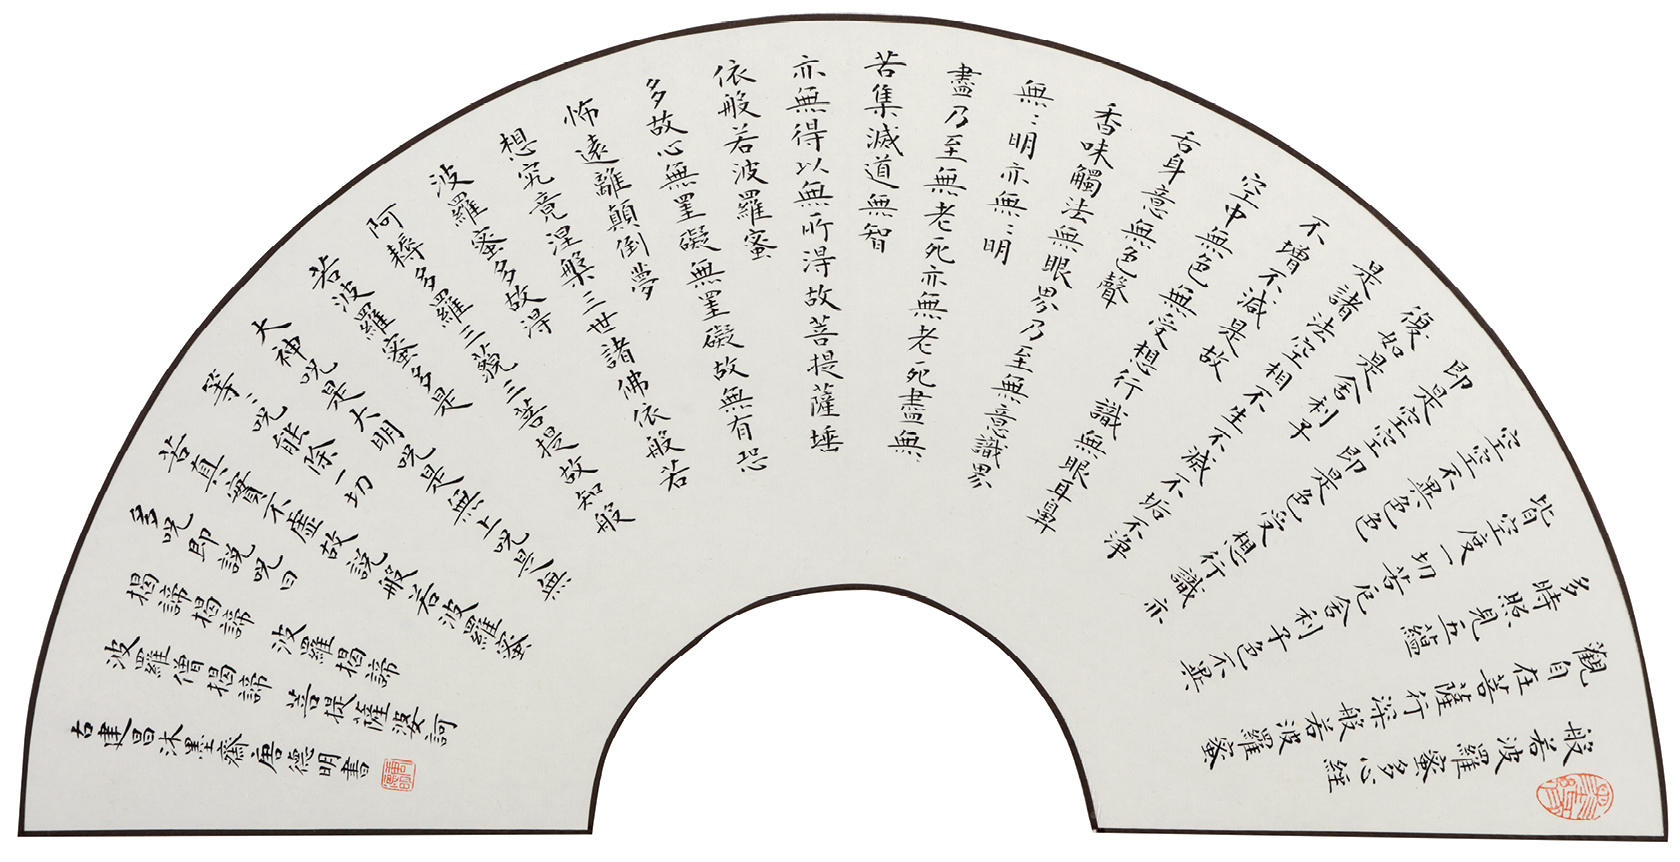 般若波羅蜜多心經
觀自在菩薩行深般若波羅蜜
多時照見五蘊
皆空度一切苦厄舍利子色不異
空空不異色色
即是空空即是色受想行識亦
復如是舍利子
是諸法空相不生不滅不垢不淨
不增不減是故
空中無色無受想行識無眼耳鼻
舌身意無色聲
香味觸法無眼界乃至無意識界
無〻明亦無〻明
盡乃至無老死亦無老死盡無
苦集滅道無智
亦無得以無所得故菩提薩埵
依般若波羅蜜
多故心無罣礙無罣礙故無有恐
怖遠離顛倒夢
想究竟涅槃三世諸佛依般若
波羅蜜多故得
阿耨多羅三藐三菩提故知般
若波羅蜜多是
大神咒是大明咒是無上咒是無
等〻咒能除一切
苦真實不虛故說般若波羅蜜
多咒即說咒曰
揭諦揭諦 波羅揭諦
波羅僧揭諦 菩提薩婆訶
古建昌沐墨齋唐德明書